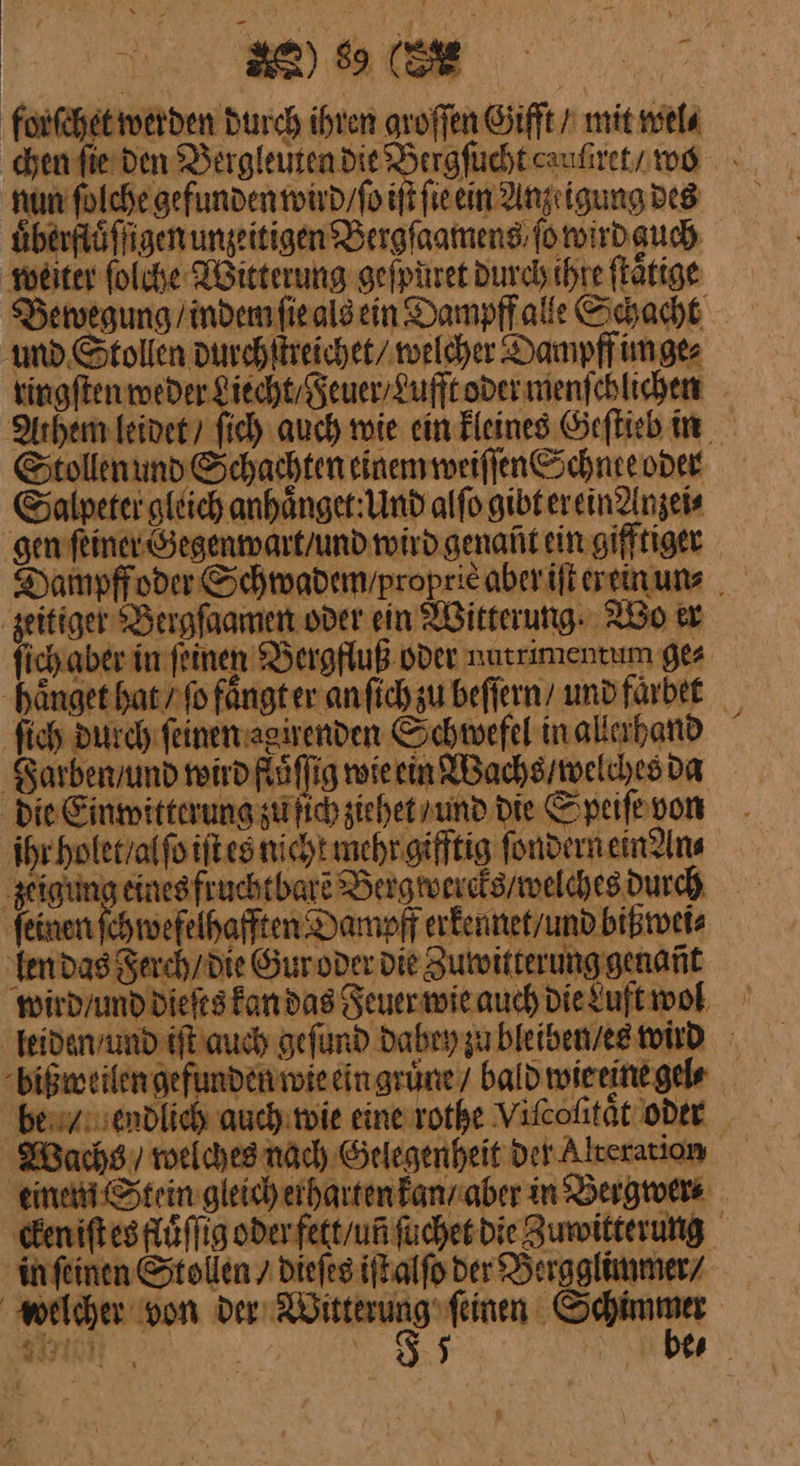 ) 89 (
forſchet werden durch ihren groſſen Gifft / mit wel⸗
chen ſie den Bergleuten die Bergſucht cauſiret / wo
nun ſolche gefunden wird / ſo iſt ſie ein Anzeigung des
uͤberfluͤſſigen unzeitigen Bergſaamens / ſo wird auch
weiter ſolche Witterung geſpuͤret durch ihre ſtaͤtige
Bewegung / indem ſie als ein Dampff alle Schacht
und Stollen durchſtreichet / welcher Dampff im ge⸗
ringſten weder Liecht / Feuer / Lufft oder menſchlichen
Athem leidet / ſich auch wie ein kleines Geſtieb in
Stollen und Schachten einem weiſſen Schnee oder
Salpeter gleich anhaͤnget: Und alſo gibt er ein Anzei⸗
gen ſeiner Gegenwart / und wird genañt ein gifftiger
Dampff oder Schwadem / propriè aber iſt er ein un⸗
zeitiger Bergſaamen oder ein Witterung. Wo er
ſich aber in ſeinen Bergfluß oder nutrimentum ge⸗
haͤnget hat / ſo faͤngt er an ſich zu beſſern / und faͤrbet
ſich durch ſeinen agirenden Schwefel in allerhand
Farben / und wird fluͤſſig wie ein Wachs / welches da
die Einwitterung zu ſich ziehet / und die Speiſe von
ihr holet / alſo iſt es nicht mehr gifftig ſondern ein An⸗
zeigung eines fruchtbarē Bergwercks / welches durch
ſeinen ſchwefelhafften Dampff erkennet / und bißwei⸗
len das Ferch / die Gur oder die Zuwitterung genañt
wird / und dieſes kan das Feuer wie auch die Luft wol
leiden / und iſt auch geſund dabey zu bleiben / es wird
bißweilen gefunden wie ein gruͤne / bald wie eine gel⸗
be / endlich auch wie eine rothe Viſcoſitaͤt oder
Wachs / welches nach Gelegenheit der Alteration
einem Stein gleich erharten kan / aber in Bergwer⸗
cken iſt es fluͤſſig oder fett / uñ ſuchet die Zuwitterung
in ſeinen Stollen / dieſes iſt alſo der Bergglimmer /
welcher von der Witterung ſeinen Schimmer
F 5 be⸗